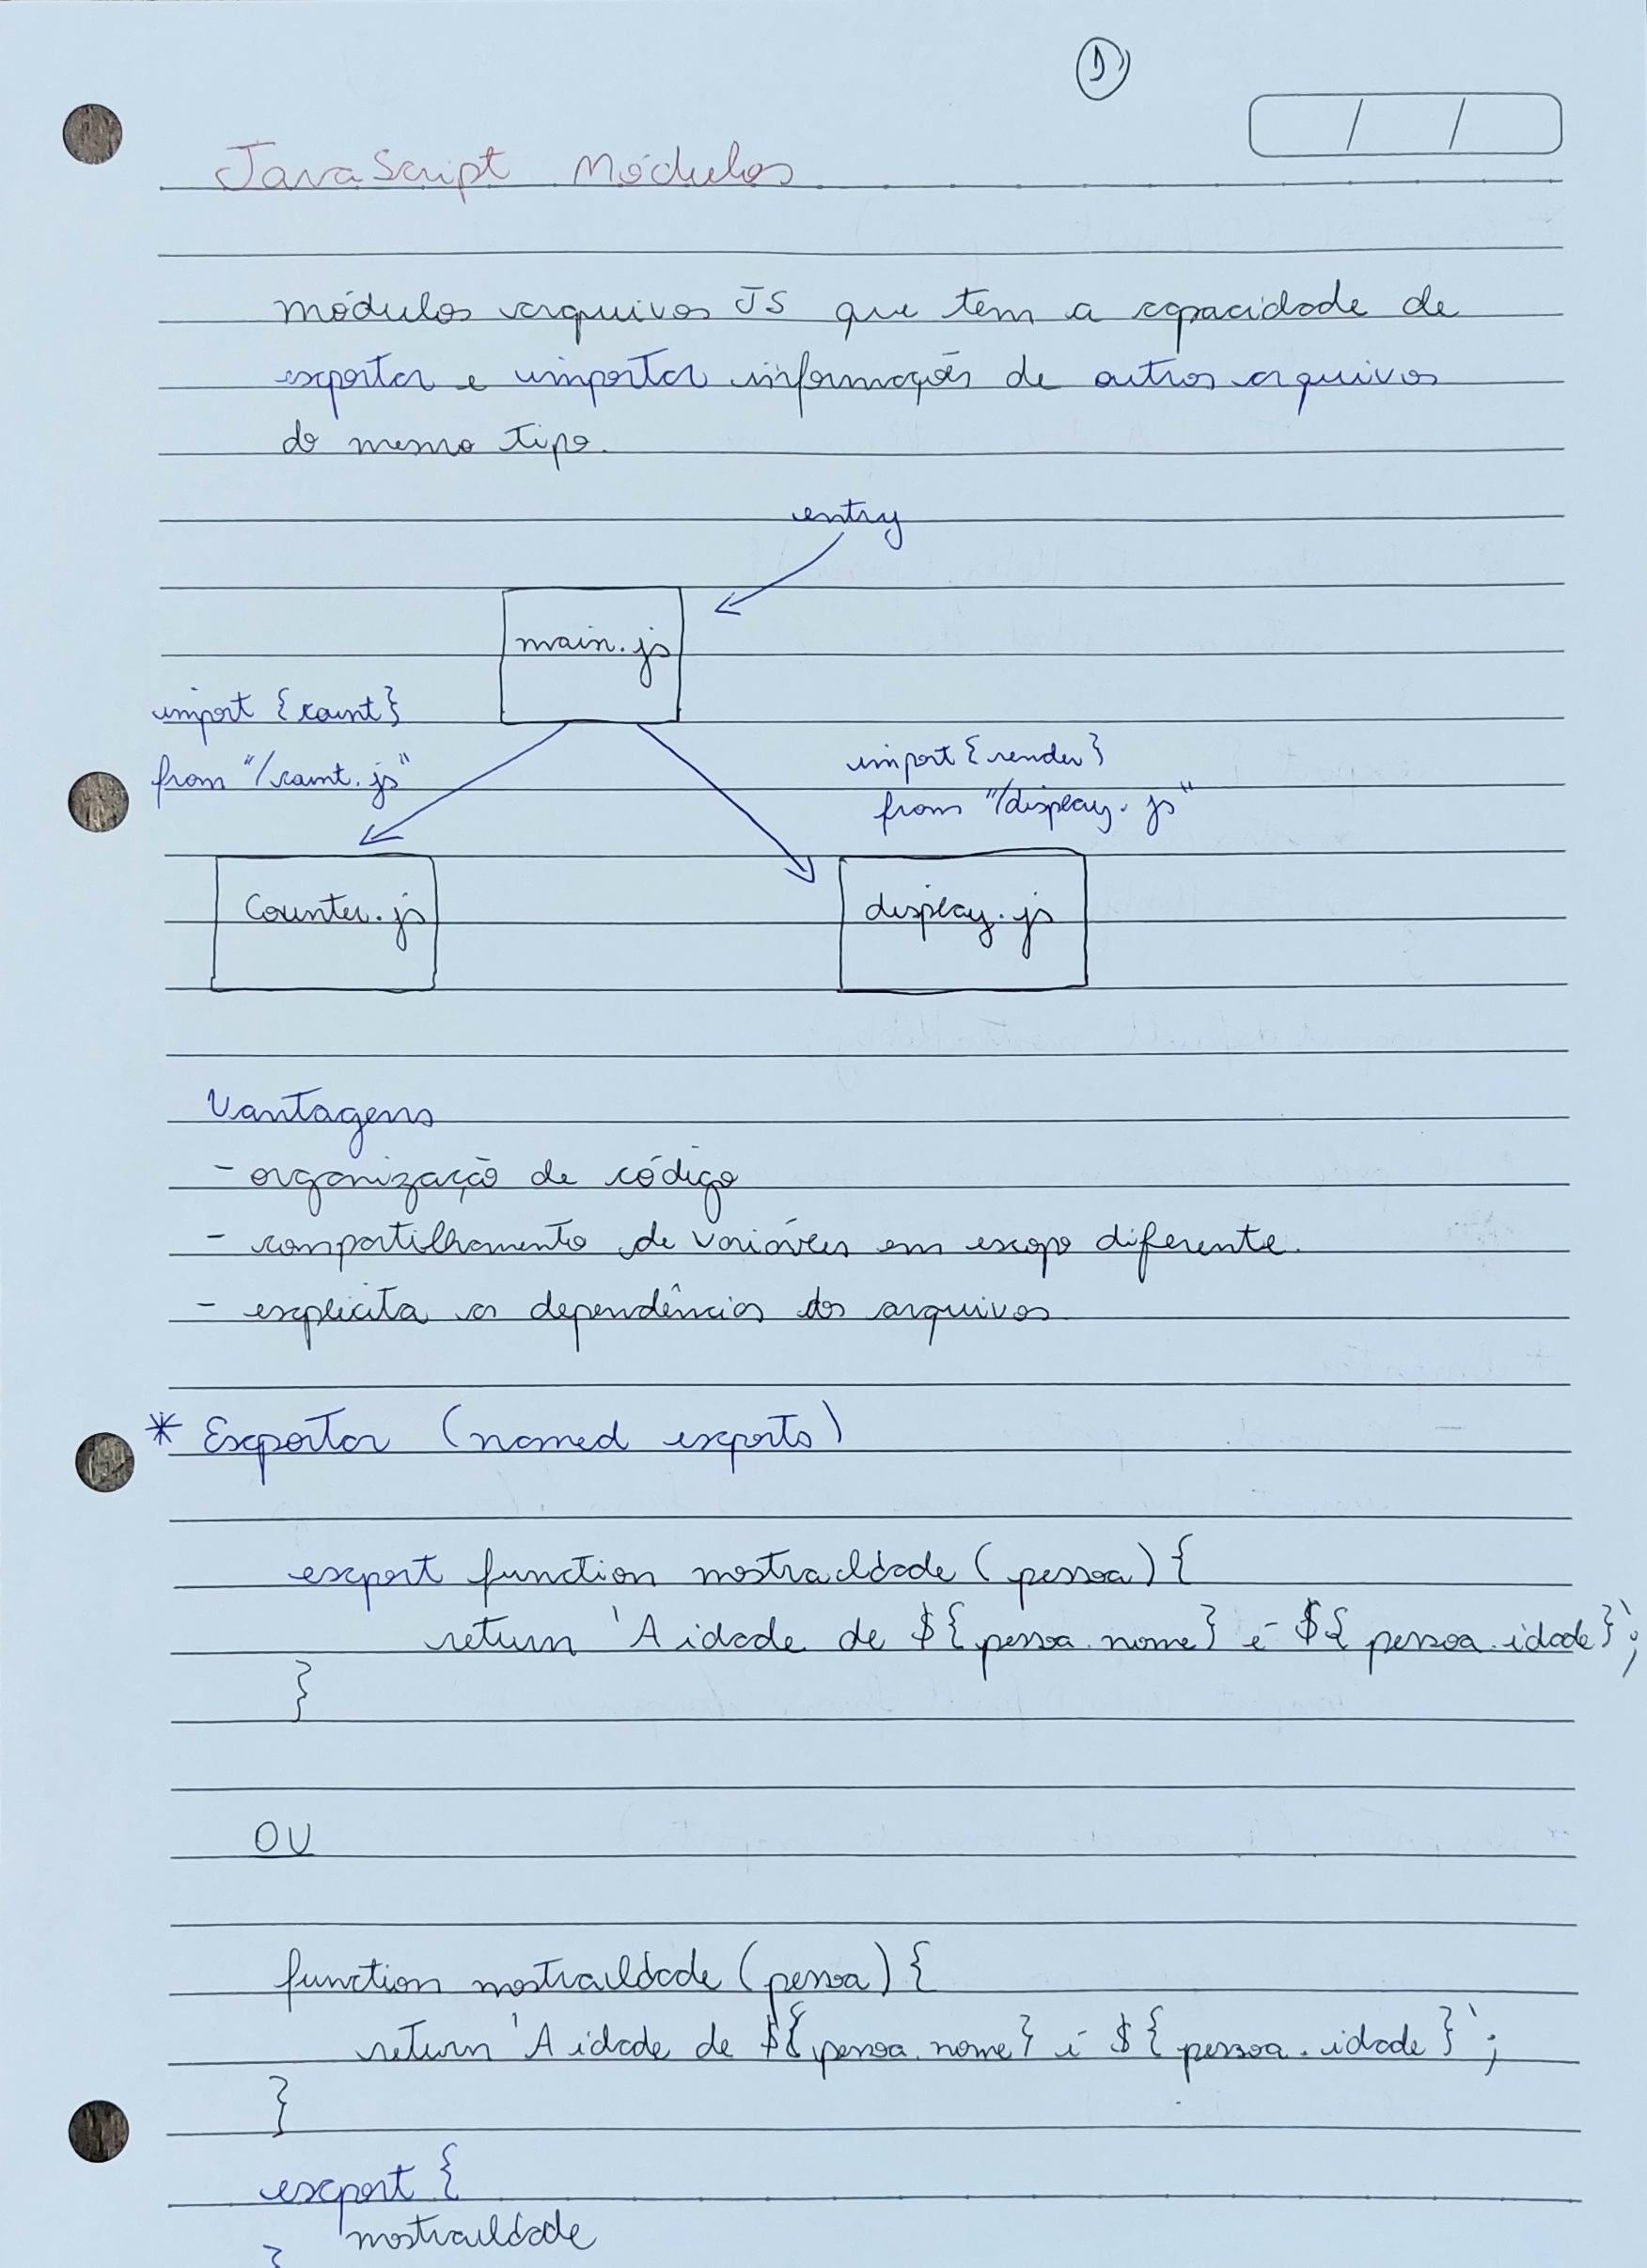 1
JavaScript Módulos
/ /
módulos arquivos JS que tem a capacidade de
exportar e importar informações de outros arquivos
do mesmo tipo.
entry
main.js
import {count}
from "/count.js"
import {render}
from "/display.js"
Counter.js
display.js
Vantagens
- organização de código
- compartilhamento de variáveis em escopo diferente.
- explicita as dependências dos arquivos
* Exportar (named exports)
export function mostraIdade (pessoa) {
return `A idade de ${pessoa.nome} é ${pessoa.idade}`;
}
OU
function mostraIdade (pessoa) {
return `A idade de ${pessoa.nome} é ${pessoa.idade}`;
}
export {
mostraIdade
}